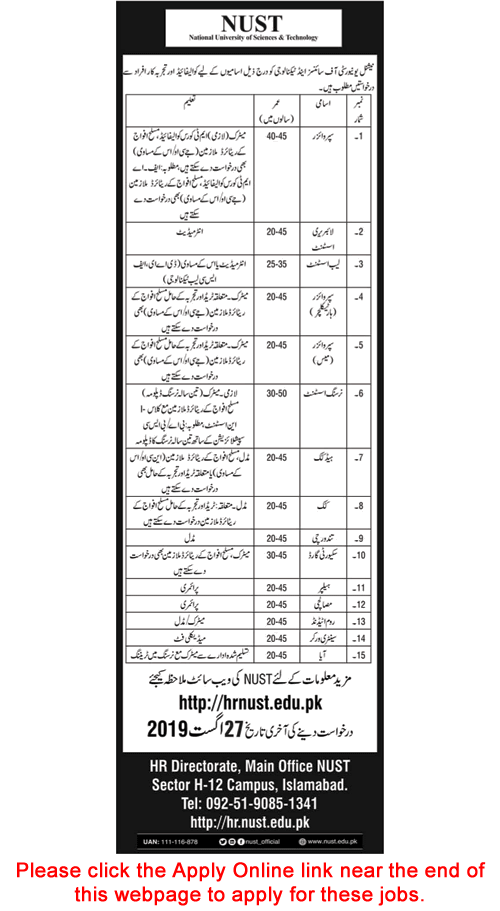 NUST
National University of Sciences & Technology
نیشنل یونیورسٹی آف سائنسز اینڈ ٹیکنالوجی کو درج ذیل اسامیوں کے لیے کوالیفائیڈ اور تجربہ کار افراد سے
درخواستیں مطلوب ہیں۔
نمبر شمار اسامی عمر (سالوں میں) تعلیم
1۔ سپروائزر 40-45 میٹرک (لازمی) ایم ٹی کورس کوالیفائیڈ، مسلح افواج
کے ریٹائرڈ ملازمین (جے سی او/اس کے مساوی)
بھی درخواست دے سکتے ہیں، مطلوبہ: ایف۔اے
ایم ٹی کورس کوالیفائیڈ، مسلح افواج کے ریٹائرڈ ملازمین
(جے سی او/اس کے مساوی) بھی درخواست دے
سکتے ہیں
2۔ لائبریری اسسٹنٹ 20-45 انٹرمیڈیٹ
3۔ لیب اسسٹنٹ 25-35 انٹرمیڈیٹ یا اس کے مساوی (ڈی اے ای، ایف
ایس سی لیب ٹیکنالوجی)
4۔ سپروائزر (ہارٹیکلچر) 20-45 میٹرک۔ متعلقہ ٹریڈ اور تجربہ کے حامل مسلح افواج کے
ریٹائرڈ ملازمین (جے سی او/اس کے مساوی) بھی
درخواست دے سکتے ہیں
5۔ سپروائزر (میس) 20-45 میٹرک۔ متعلقہ ٹریڈ اور تجربہ کے حامل مسلح افواج کے
ریٹائرڈ ملازمین (جے سی او/اس کے مساوی) بھی
درخواست دے سکتے ہیں
6۔ نرسنگ اسسٹنٹ 30-50 لازمی۔ میٹرک (تین سالہ نرسنگ ڈپلومہ)
مسلح افواج کے ریٹائرڈ ملازمین مع کلاس-I
این اسسٹنٹ، مطلوبہ: بی اے/بی ایس سی
سپیشلائزیشن کے ساتھ تین سالہ نرسنگ کا ڈپلومہ
7۔ ہیڈ کک 20-45 مڈل، مسلح افواج کے ریٹائرڈ ملازمین (این سی او/اس
کے مساوی) یا متعلقہ ٹریڈ اور تجربہ کے حامل بھی
درخواست دے سکتے ہیں
8۔ کک 20-45 مڈل۔ متعلقہ: ٹریڈ اور تجربہ کے حامل مسلح افواج کے
ریٹائرڈ ملازمین درخواست دے سکتے ہیں
9۔ تندورچی 20-45 مڈل
10۔ سکیورٹی گارڈ 30-45 میٹرک، مسلح افواج کے ریٹائرڈ ملازمین بھی درخواست
دے سکتے ہیں
11۔ ہیلپر 20-45 پرائمری
12۔ مصالچی 20-45 پرائمری
13۔ روم اٹینڈنڈ 20-45 میٹرک/مڈل
14۔ سینٹری ورکر 20-45 میڈیکلی فٹ
15۔ آیا 20-45 تسلیم شدہ ادارے سے میٹرک مع نرسنگ میں ٹریننگ
مزید معلومات کے لئے NUST کی ویب سائٹ ملاحظہ کیجئے
http://hrnust.edu.pk
درخواست دینے کی آخری تاریخ 27 اگست 2019
HR Directorate, Main Office NUST
Sector H-12 Campus, Islamabad.
Tel: 092-51-9085-1341
http://hr.nust.edu.pk
UAN: 111-116-878 nust_official www.nust.edu.pk
Please click the Apply Online link near the end of
this webpage to apply for these jobs.